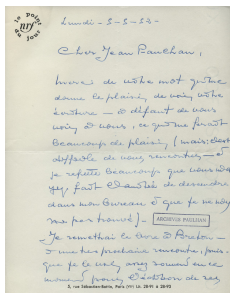 le point
nrf
du jour
Lundi - 5-5-52 -
Cher Jean Paulhan,
Merci de votre mot qui me
donne le plaisir, de voir votre
écriture — à défaut de vous
voir, vous, ce qui me ferait
beaucoup de plaisir (mais c'est
difficile de vous rencontrer — et
je regrette beaucoup que vous
fait l'autre de descendre
dans mon bureau où que je ne
me pas trouvé) -
ARCHIVES PAULHAN
Je remettrai le livre à
à une très prochaine rencontre, puis-
que je le vois assez souvent en ce
moment pour
5, rue Sébastien-Bottin, Paris (VIIe) Lit. 28-91 à 28-93